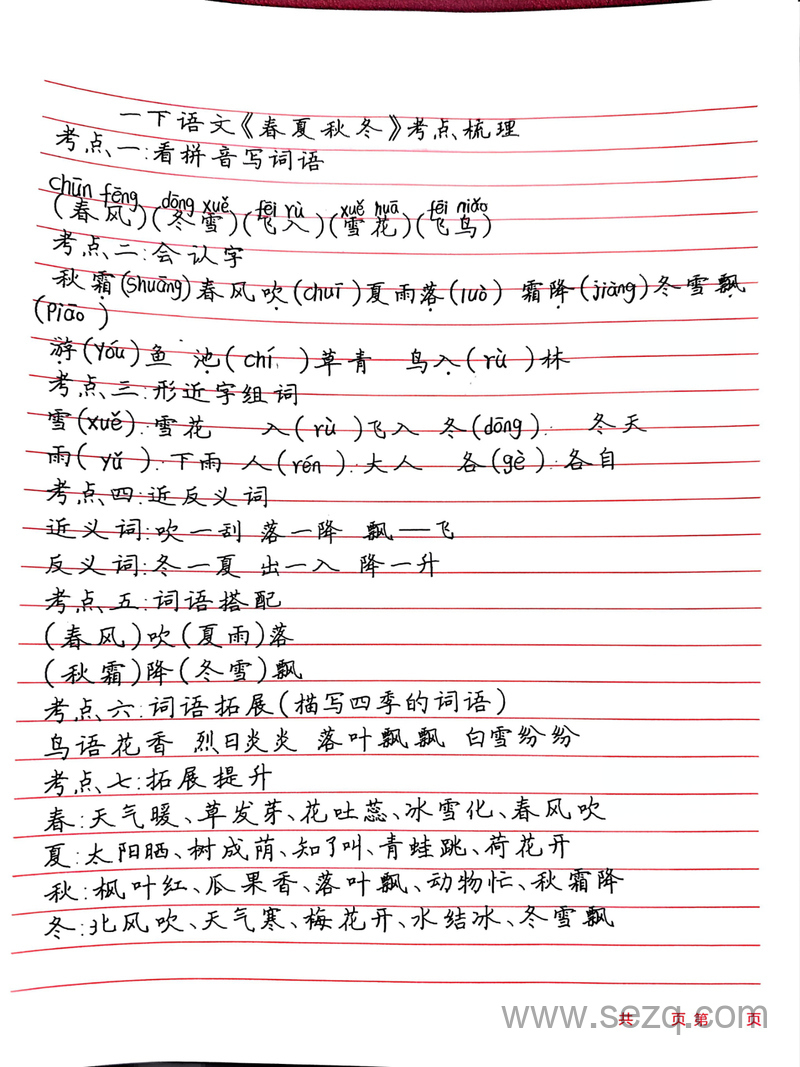 一下语文《春夏秋冬》考点梳理
考点一:看拼音写词语
chūn fēng dōng xuě fēi rù xuě huā fēi niǎo
(春风)(冬雪)(飞入)(雪花)(飞鸟)
考点二:会认字
秋霜(shuāng)春风吹(chuī)夏雨落(luò) 霜降(jiàng)冬雪飘
(piāo)
游(yóu)鱼 池(chí )草青 鸟入(rù)林
考点三:形近字组词
雪(xuě):雪花 入(rù)飞入 冬(dōng): 冬天
雨(yǔ ):下雨 人(rén):大人 各(gè):各自
考点四:近反义词
近义词:吹一刮 落一降 飘——飞
反义词:冬一夏 出一入 降一升
考点五:词语搭配
(春风)吹(夏雨)落
(秋霜)降(冬雪)飘
考点六:词语拓展(描写四季的词语)
鸟语花香 烈日炎炎 落叶飘飘 白雪纷纷
考点七:拓展提升
春:天气暖、草发芽、花吐蕊、冰雪化、春风吹
夏:太阳晒、树成荫、知了叫、青蛙跳、荷花开
秋:枫叶红、瓜果香、落叶飘、动物忙、秋霜降
冬:北风吹、天气寒、梅花开、水结冰、冬雪飘
www.sezq.com
共 页 第 页